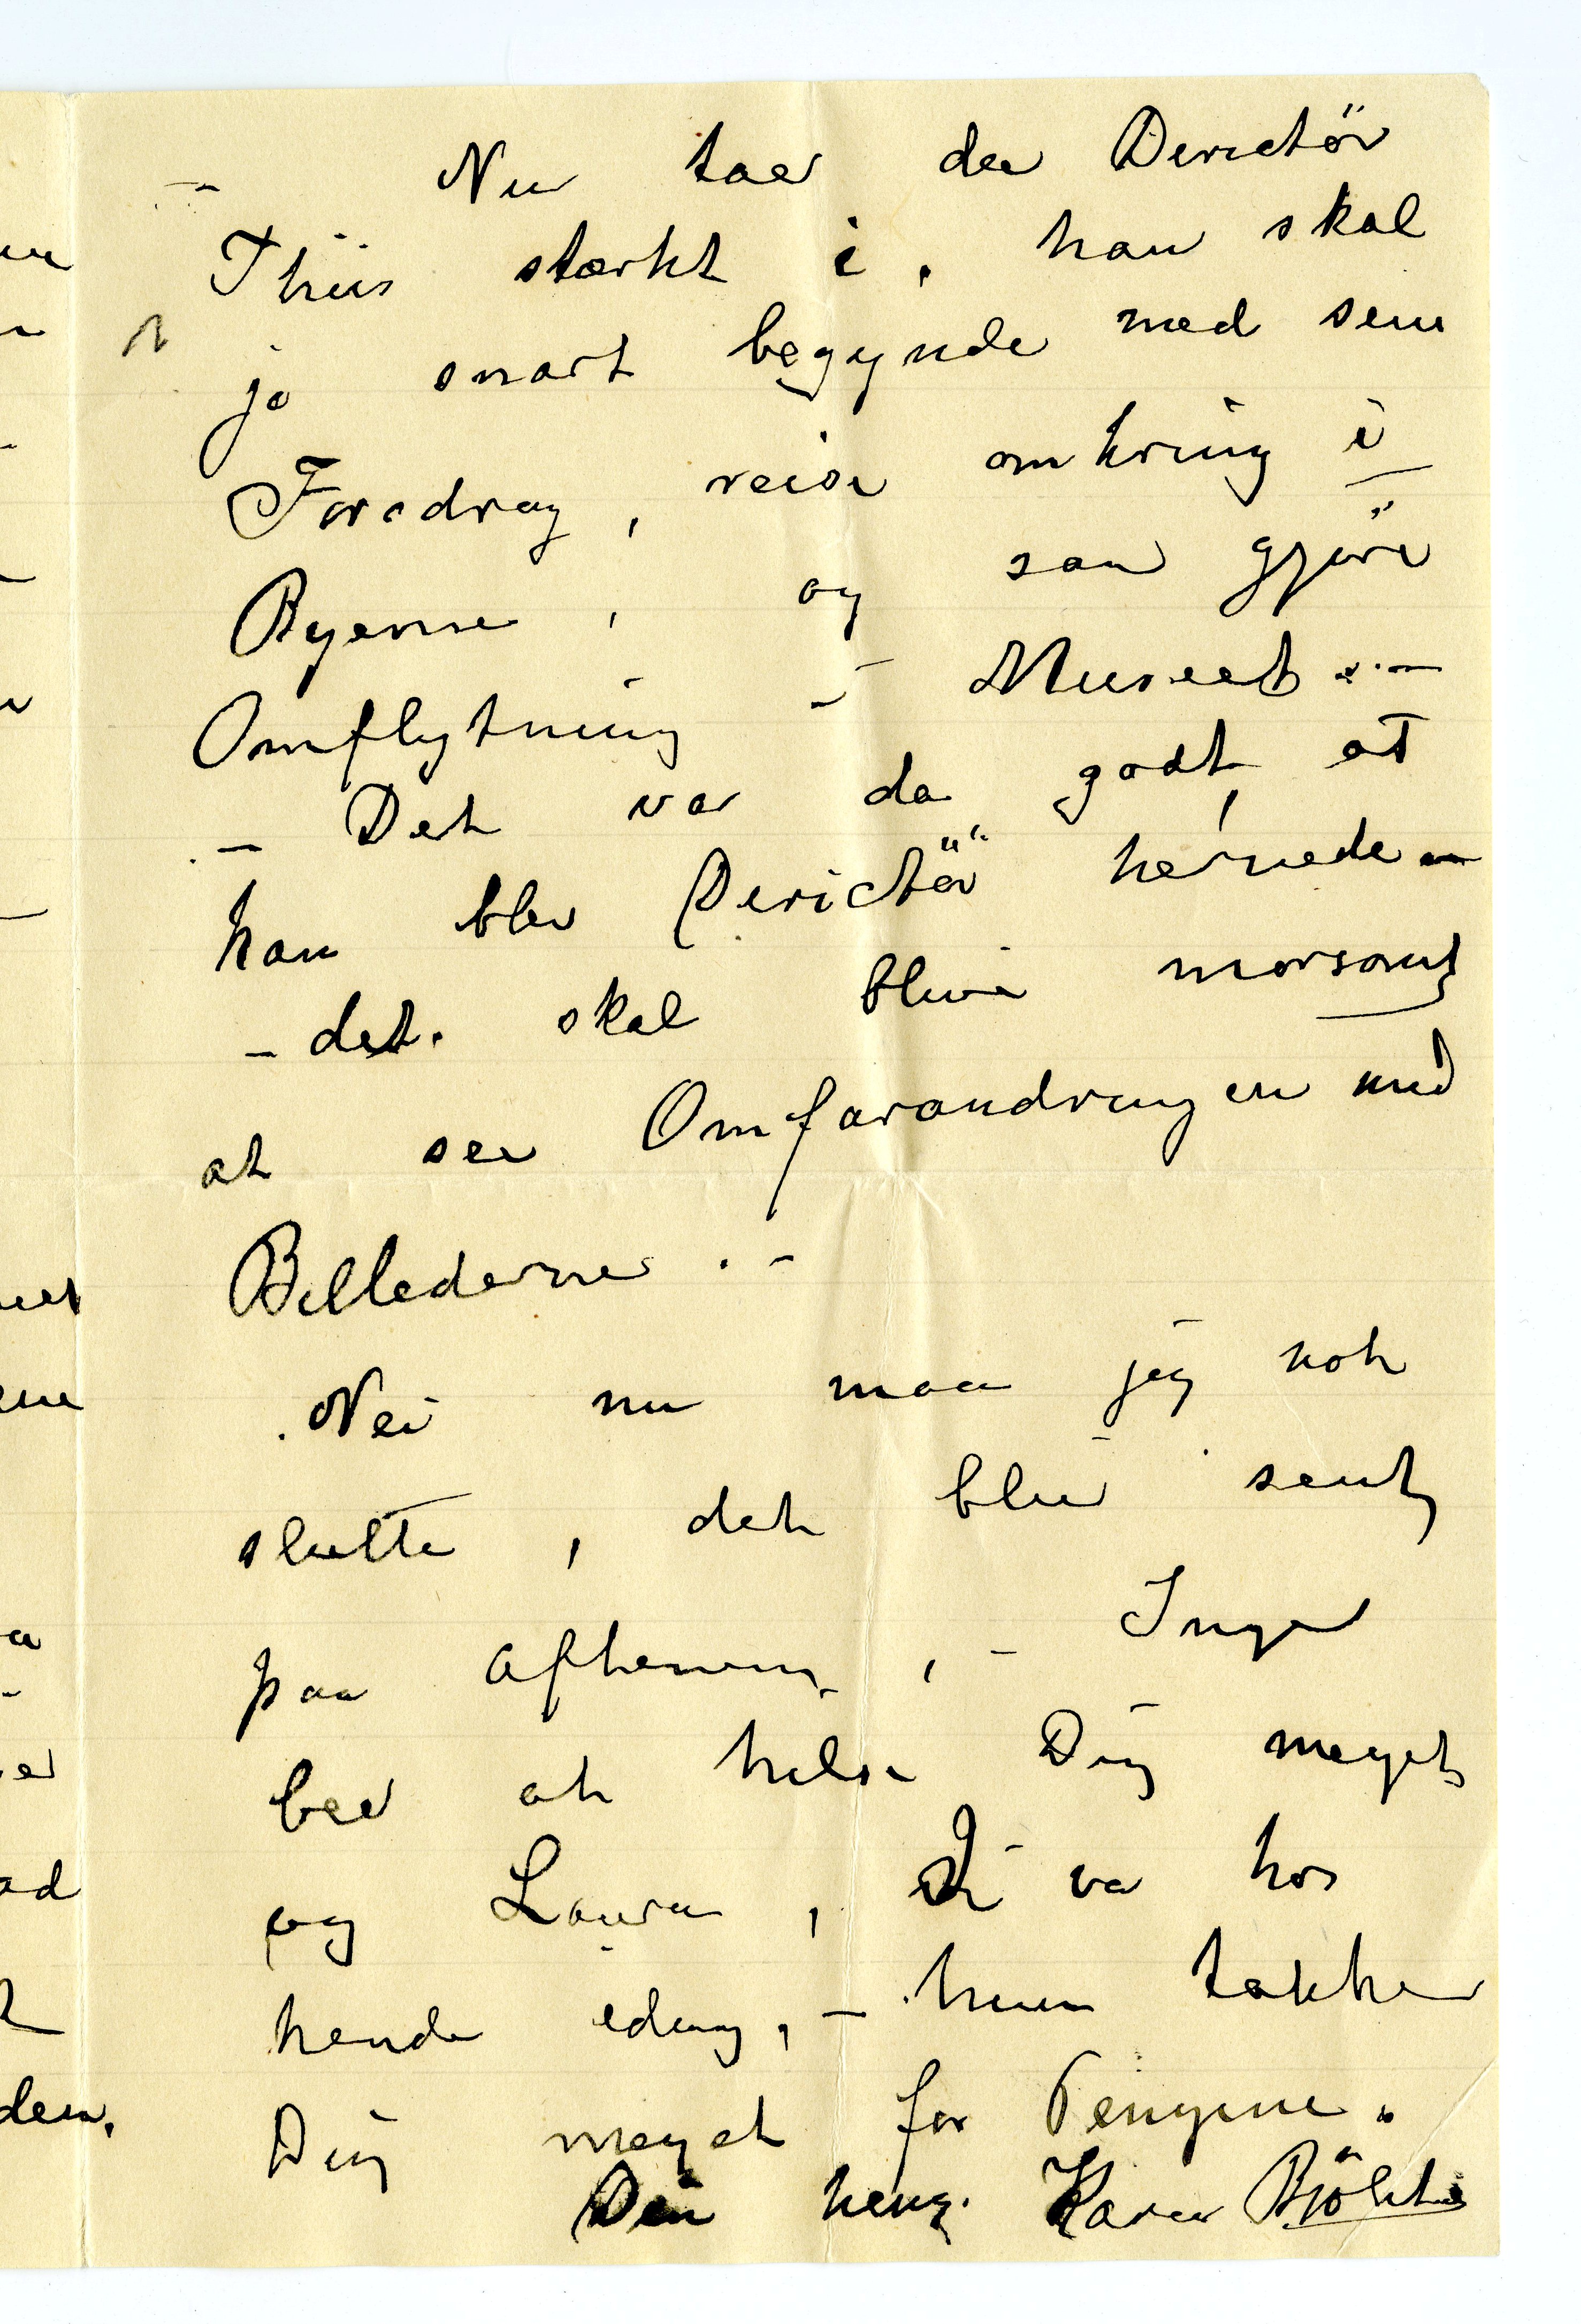 – Nu taer der Derictör
Thiis stærkt i, han skal
jo snart begynde med sine
Foredrag, reise omkring i
Byerne, og saa gjöre
Omflytning i Museet. –
– Det var da godt, at
han blev Derictör hernede –
– det skal blive morsomt
at see Omforandringen med
Billederne. –
Nei nu maa jeg nok
slutte, det blir sent
paa Aftenen, – Inger
beer at hilse Dig meget
og Laura, Vi va hos
hende idag, – hun takker
Dig meget for Pengene.
Din heng. Karen Bjölstad